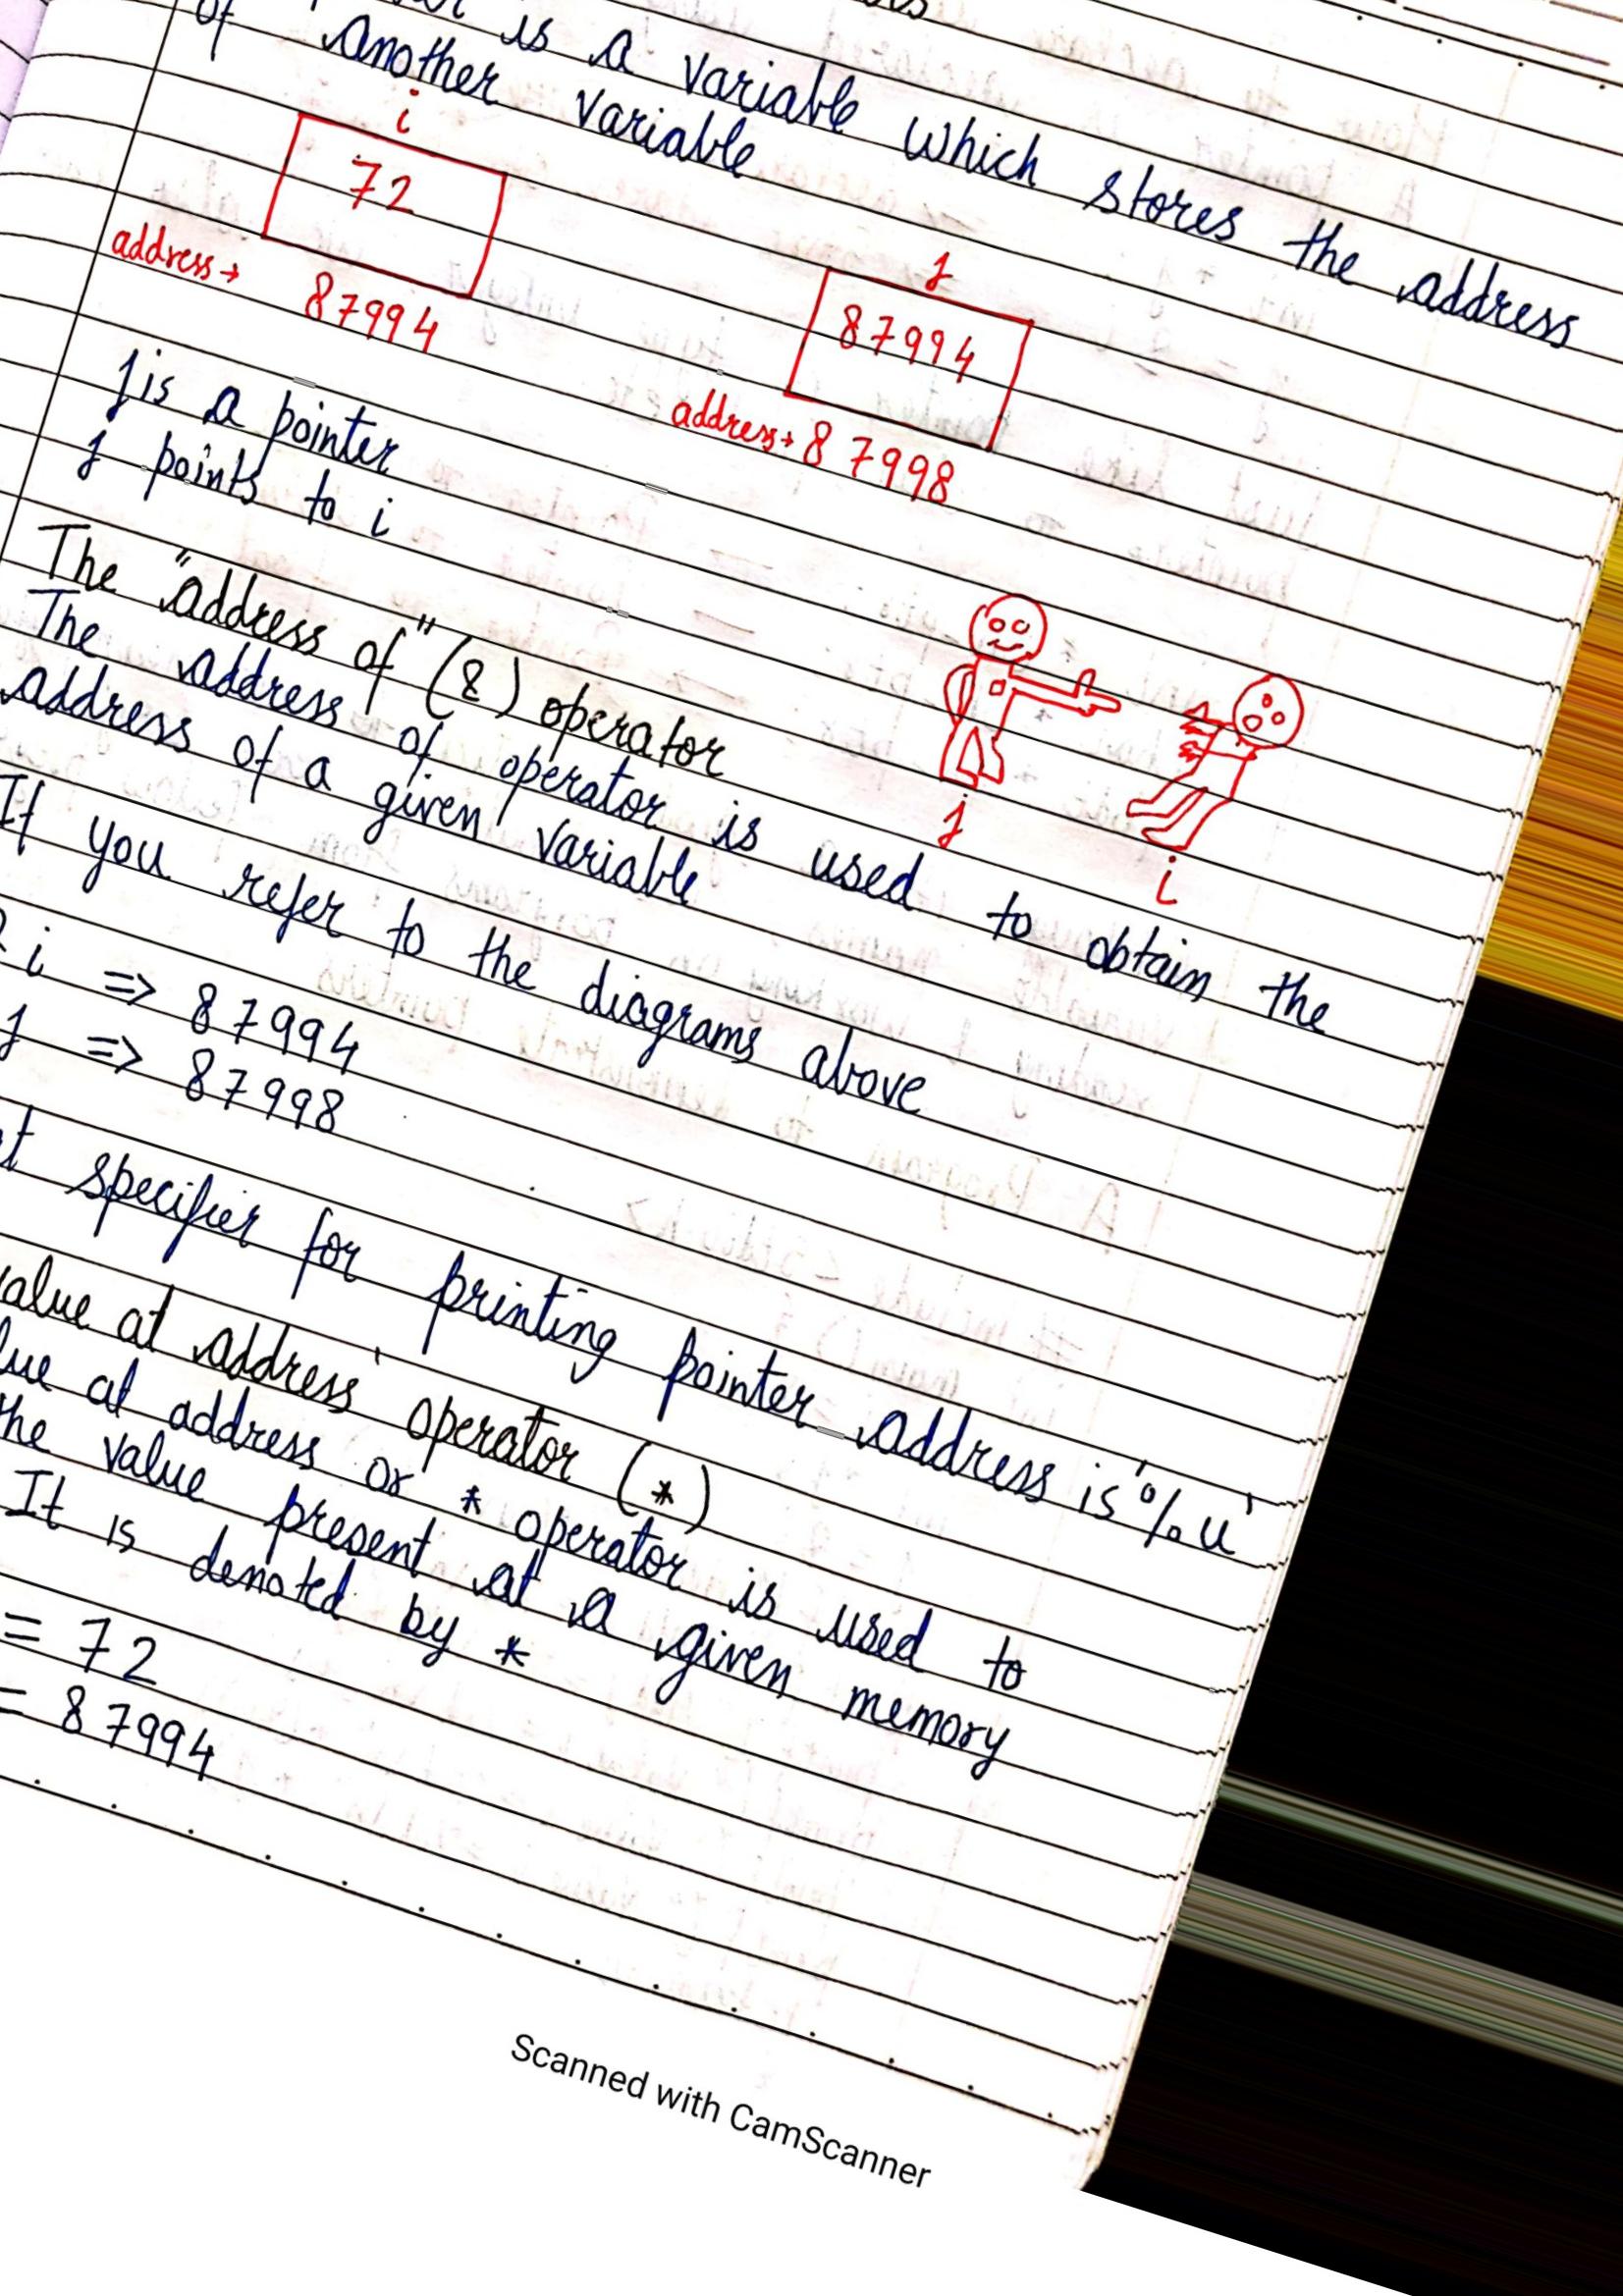 is a variable which stores the address
of another variable
i
72
address → 87994
j
87994
address → 87998
j is a pointer
j points to i
j
i
The "address of" (&) operator
The address of operator is used to obtain the
address of a given variable
If you refer to the diagrams above
i => 87994
j => 87998
specifier for printing pointer address is '%u'
value at address' operator (*)
at address or * operator is used to
the value present at a given memory
It is denoted by *
= 72
= 87994
Scanned with CamScanner